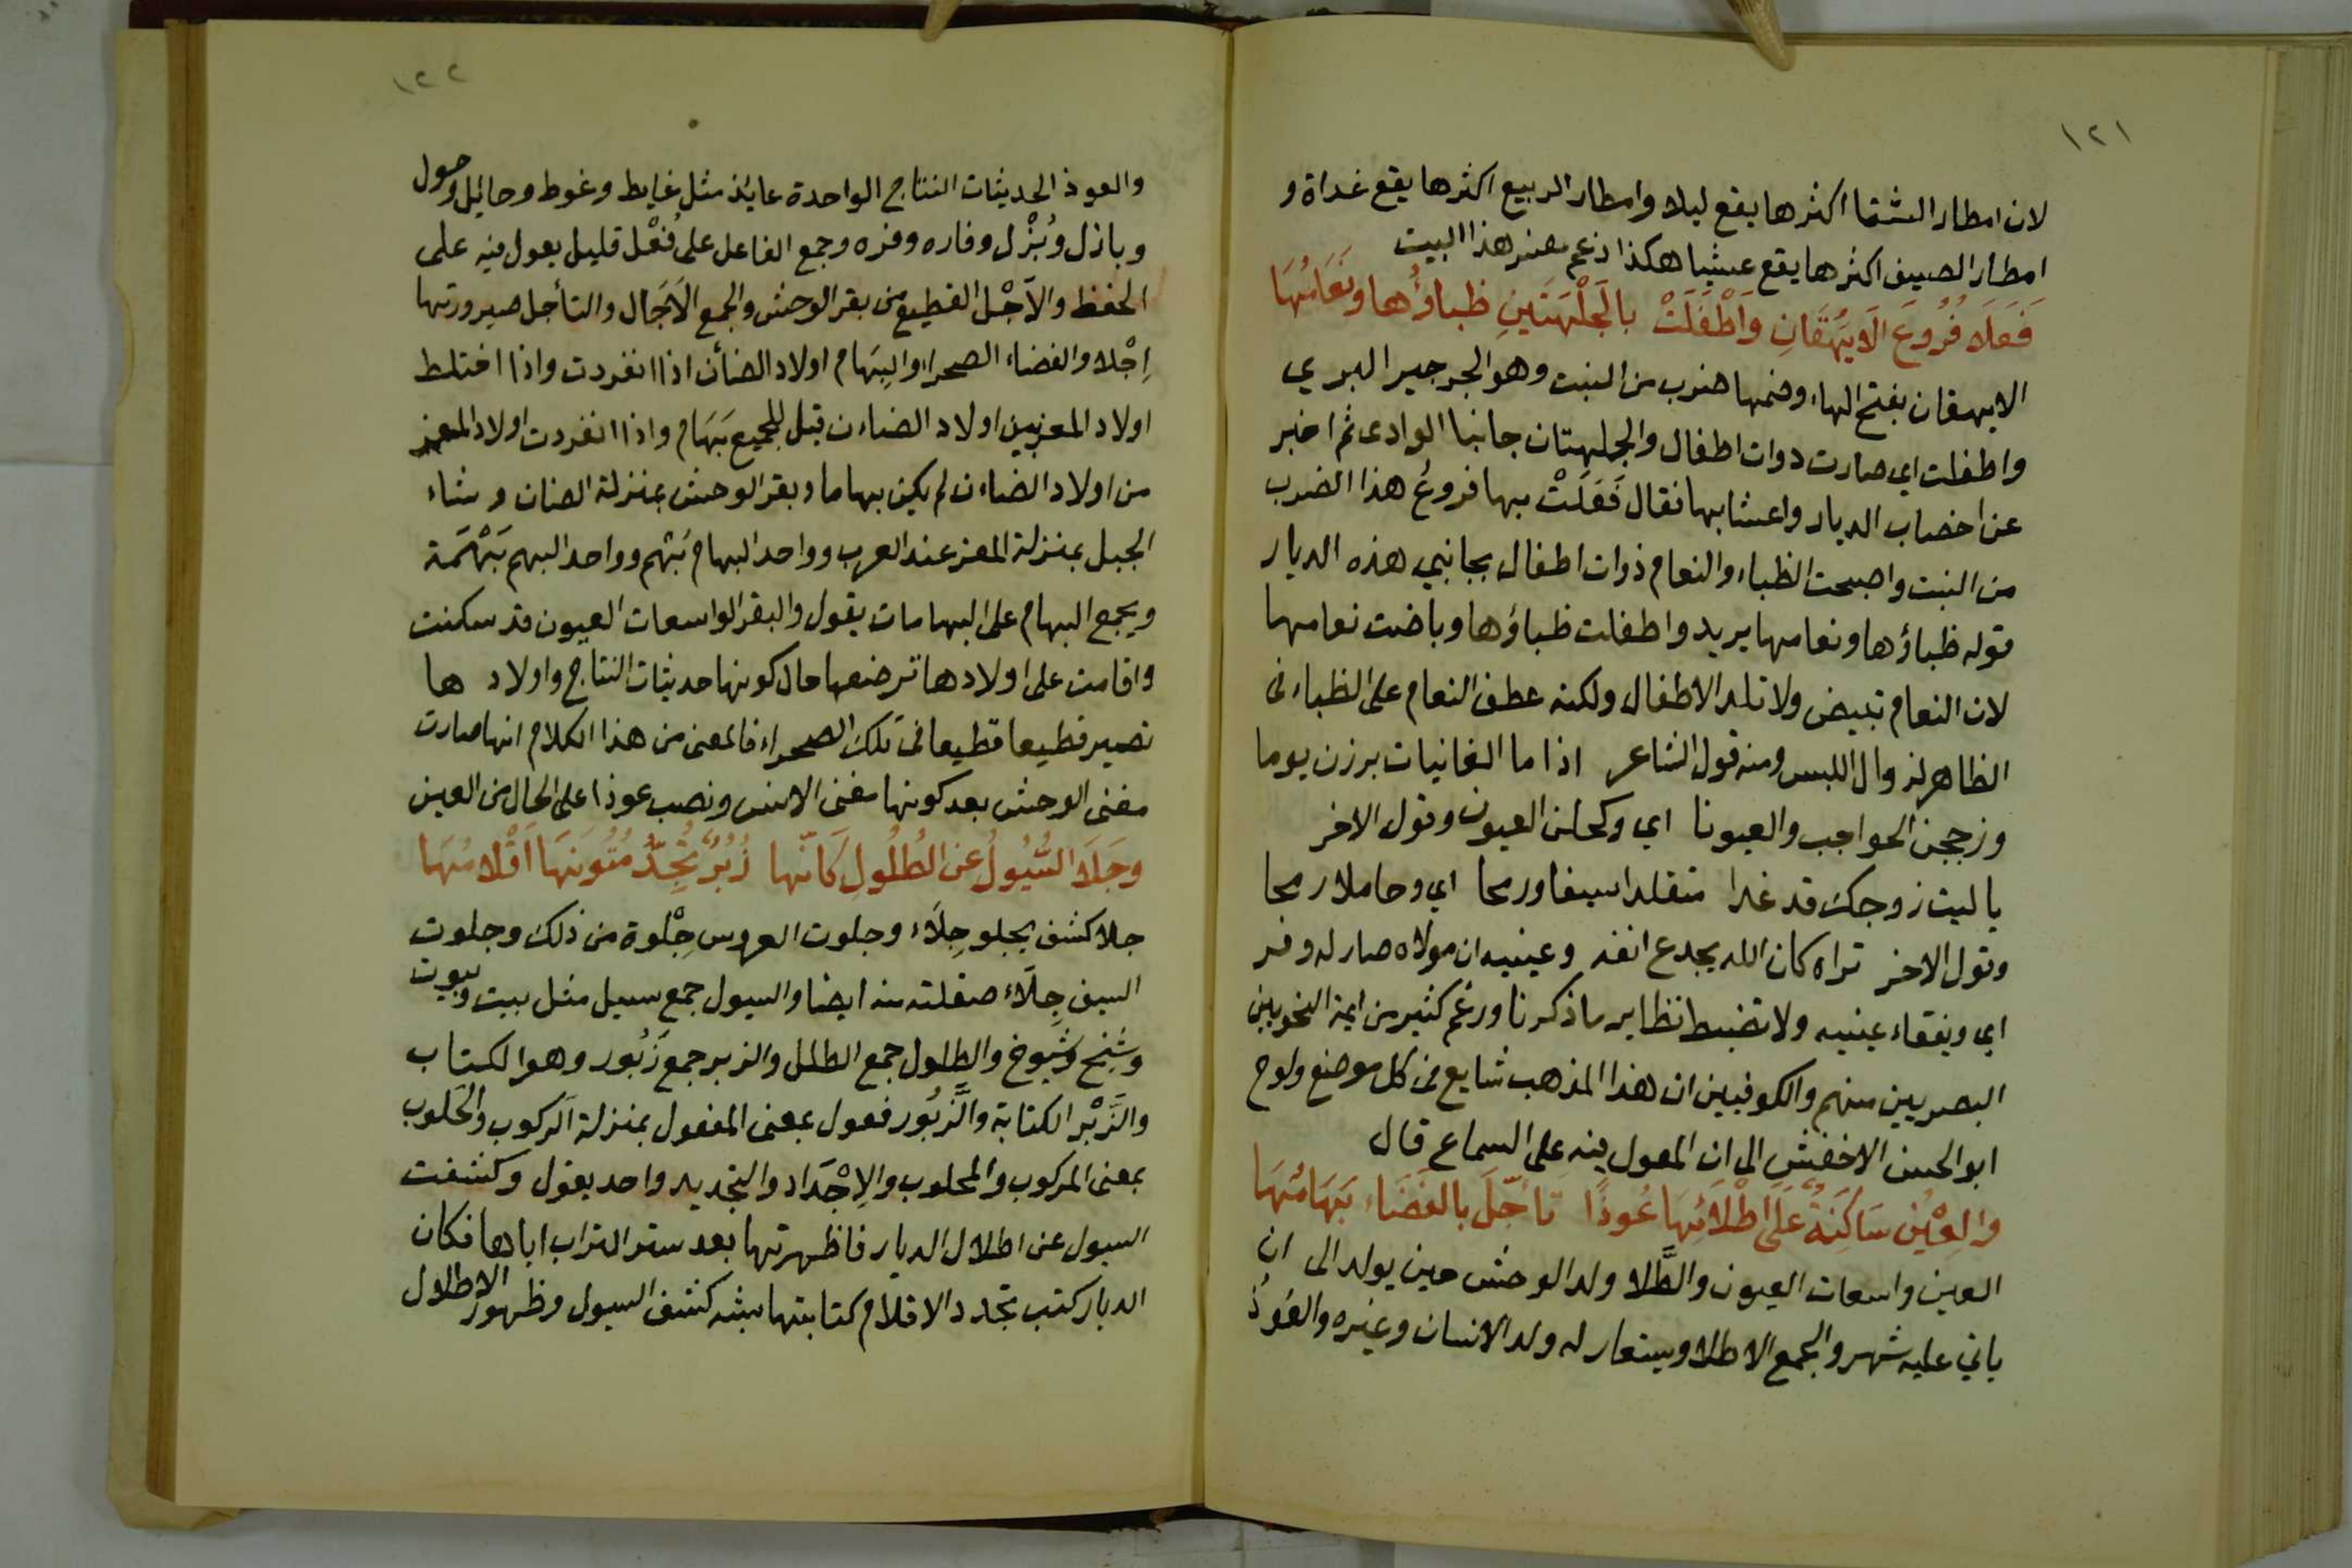 ١٢١
لان امطار الشتا اكثرها يقع ليلا وامطار الربيع اكثرها يقع غداة و
امطار الصيف اكثرها يقع عشيا هكذا زعم مفسر هذا البيت
فَعَلَا فُرُوعَ الَايَهُقَانِ وَاَطْفَلَتْ بالجَلْهَتَينِ ظباؤُها ونَعَامُهَا
الايهقان بفتح الهاء وضمها ضرب من النبت وهو الجرجير البري
واطفلت اي صارت دوات اطفال والجلهتان جانبا الوادى ثم اخبر
عن اخصاب الديار واعشابها فقال فَعَلَتْ بها فروعُ هذا الضرب
من النبت واصبحت الظباء والنعام ذوات اطفال بجانبي هذه الديار
قوله ظباؤها ونعامها يريد واطفلت ظباؤها وباضت نعامها
لان النعام تبيض ولا تلد الاطفال ولكنه عطف النعام على الظباء فى
الظاهر لزوال اللبس ومنه قول الشاعر اذا ما الغانيات برزن يوما
وزججن الحواجب والعيونا اي وكحلن العيون وقول الاخر
يا ليت زوجك قد غدا متقلدا سيفا ورمحا اي وحاملا رمحا
وقول الاخر تراه كان الله يجدع انفه وعينيه ان مولاه صار له وفر
اي ويفقاء عينيه ولا تضبط نظاير ما ذكرنا وزعم كثير من ايمة النحويين
البصريين منهم والكوفيين ان هذا المذهب شايع فى كل موضع ولوح
ابو الحسن الاخفش الى ان المعول فيه على السماع قال
والعِيْنُ سَاكِنَةٌ عَلَى اَطْلَائِهَا عُوذًا تَأَجَّلَ بالفَضَاءِ بَهَامُهَا
العين واسعات العيون والطَّلا ولد الوحش حين يولد الى ان
ياتي عليه شهر والجمع الاطلا ويستعار له ولد الانسان وغيره والعُوذُ
١٢٢
والعوذ الحديثات النتاج الواحدة عايذ مثل غايط وغوط وحايل وحول
وبازل وبُزْل وفاره وفره وجمع الفاعل على فُعْل قليل يعول فيه على
الحفظ والاَجْل القطيع من بقر الوحش والجمع الآجَال والتأجل صيرورتها
اِجْلا والفضاء الصحراء والبِهَام اولاد الضأن اذا انفردت واذا اختلط
اولاد المعز بين اولاد الضاءن قيل للجميع بَهَام واذا انفردت اولاد المعز
من اولاد الضاءن لم يكن بهاما وبقر الوحش بمنزلة الضان وشاء
الجبل بمنزلة المعز عند العرب وواحد البهام بُهْم وواحد البهم بَهْمَة
ويجمع البهام على البهامات يقول والبقر الواسعات العيون قد سكنت
واقامت على اولادها ترضعها حال كونها حديثات النتاج واولاد ها
تصير قطيعا قطيعا فى تلك الصحراء فالمعنى من هذا الكلام انها صارت
مغنى الوحش بعد كونها مغنى الانس ونصب عوذا على الحال من العين
وجَلَا السُّيُولُ عن الطُلُولِ كَانَّها زُبُرٌ تُجِدُّ مُتُونَهَا اَقْلامُهَا
جلا كشف يجلو جِلَاء وجلوت العروس جِلْوة من ذلك وجلوت
السيف جِلَاء صقلته منه ايضا والسيول جمع سيل مثل بيت وبيوت
وشيخ وشيوخ والطلول جمع الطلل والزبر جمع زَبُور وهو الكتاب
والزَّبْر الكتابة والزَّبُور فعول بمعنى المفعول بمنزلة الركوب والحلوب
بمعنى المركوب والمحلوب والاِجْدَاد والتجديد واحد يقول وكشفت
السيول عن اطلال الديار فاظهرتها بعد ستر التراب اياها فكان
الديار كتب تجدد الاقلام كتابتها شبه كشف السيول وظهور الاطلال